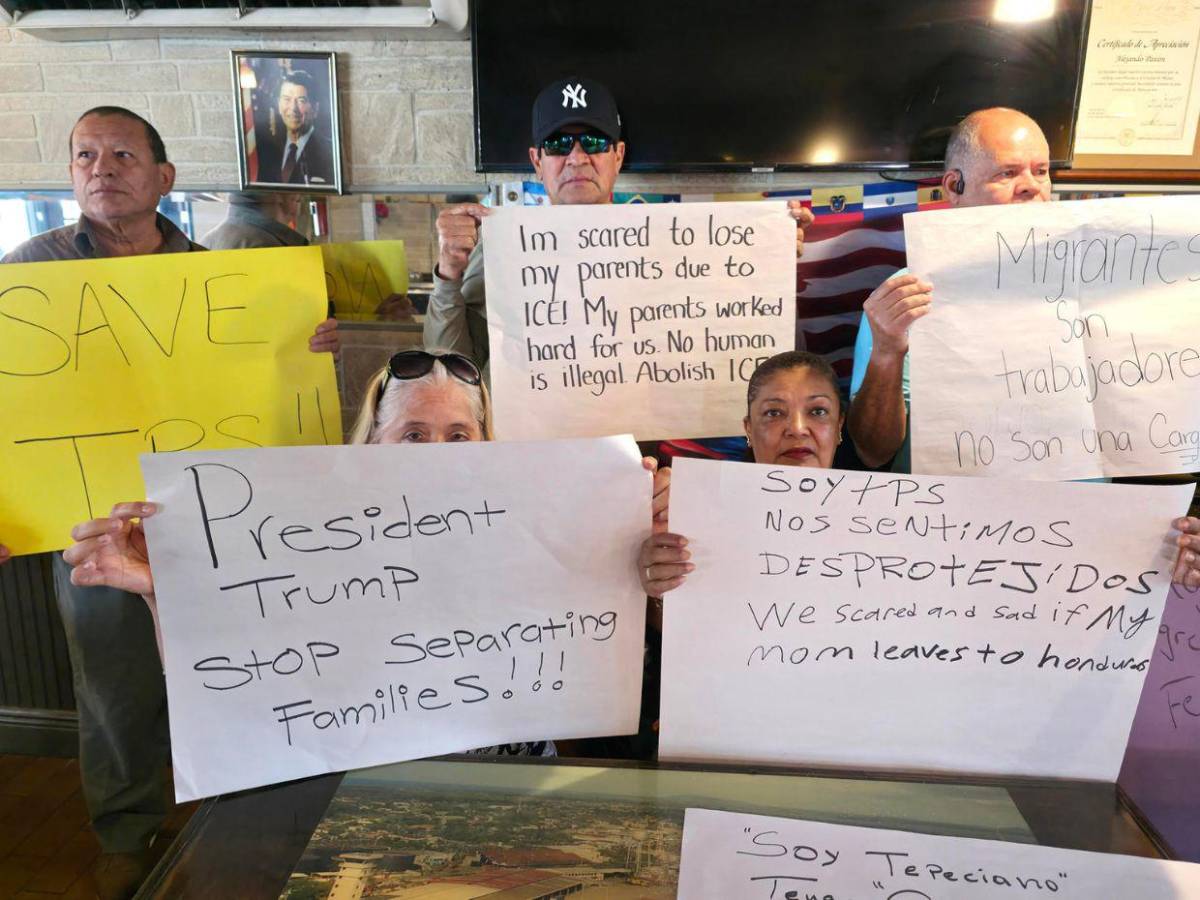 Certificado de Apreciación
Alejandro Pavon
NY
SAVE
TPS"
Im scared to lose
my parents due to
ICE! My parents worked
hard for us. No human
is illegal. Abolish ICE
Migrantes
Son
trabajadore
no son una Carg
President
Trump
STOP Separating
Families!!!
SOY TPS
NOS SENTIMOS
DESPROTEJIDOS
We scared and sad if My
mom leaves to honduras
"Soy Tepeciano"